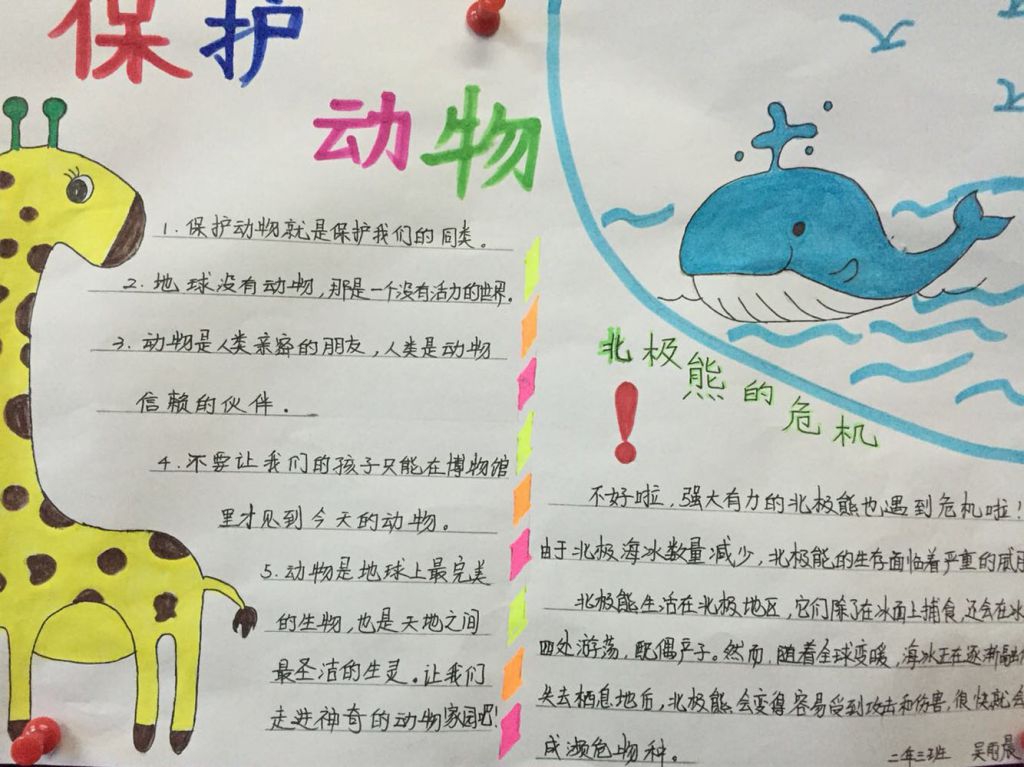 保护
动物
1.保护动物就是保护我们的同类。
2.地球没有动物,那是一个没有活力的世界。
3.动物是人类亲密的朋友,人类是动物
信赖的伙伴.
4.不要让我们的孩子只能在博物馆
里才见到今天的动物。
5.动物是地球上最完美
的生物,也是天地之间
最圣洁的生灵。让我们
走进神奇的动物家园吧!
北极熊的危机
!
不好啦,强大有力的北极熊也遇到危机啦!
由于北极海冰数量减少,北极能的生存面临着严重的威
北极能生活在北极地区,它们除了在冰面上捕食,还会在水
四处游荡,配偶产子。然而,随着全球变暖,海冰正在逐渐融
失去栖息地后,北极熊会变得容易受到攻击和伤害,很快就会
成濒危物种。
二年三班 吴雨晨